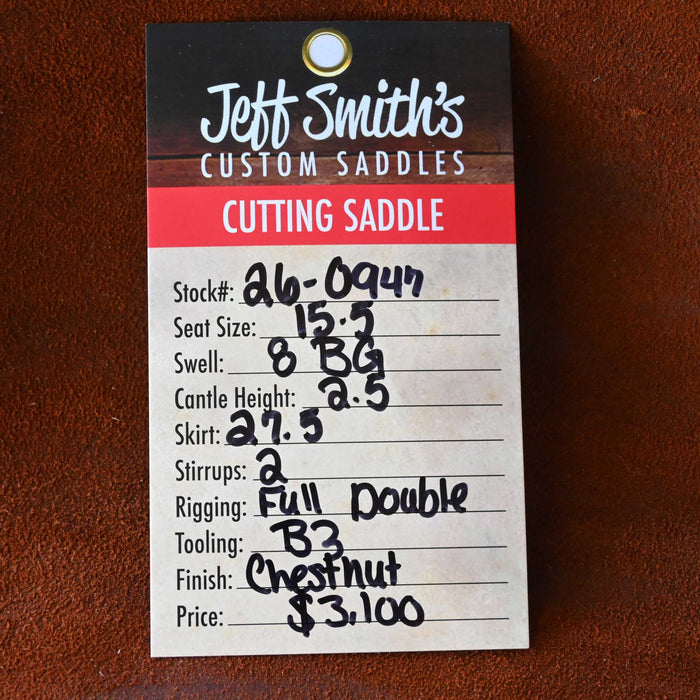 Jeff Smith's
CUSTOM SADDLES
CUTTING SADDLE
Stock#: 26-0947
Seat Size: 15.5
Swell: 8 BG
Cantle Height: 2.5
Skirt: 27.5
Stirrups: 2
Rigging: Full Double
Tooling: B3
Finish: Chestnut
Price: $3,100